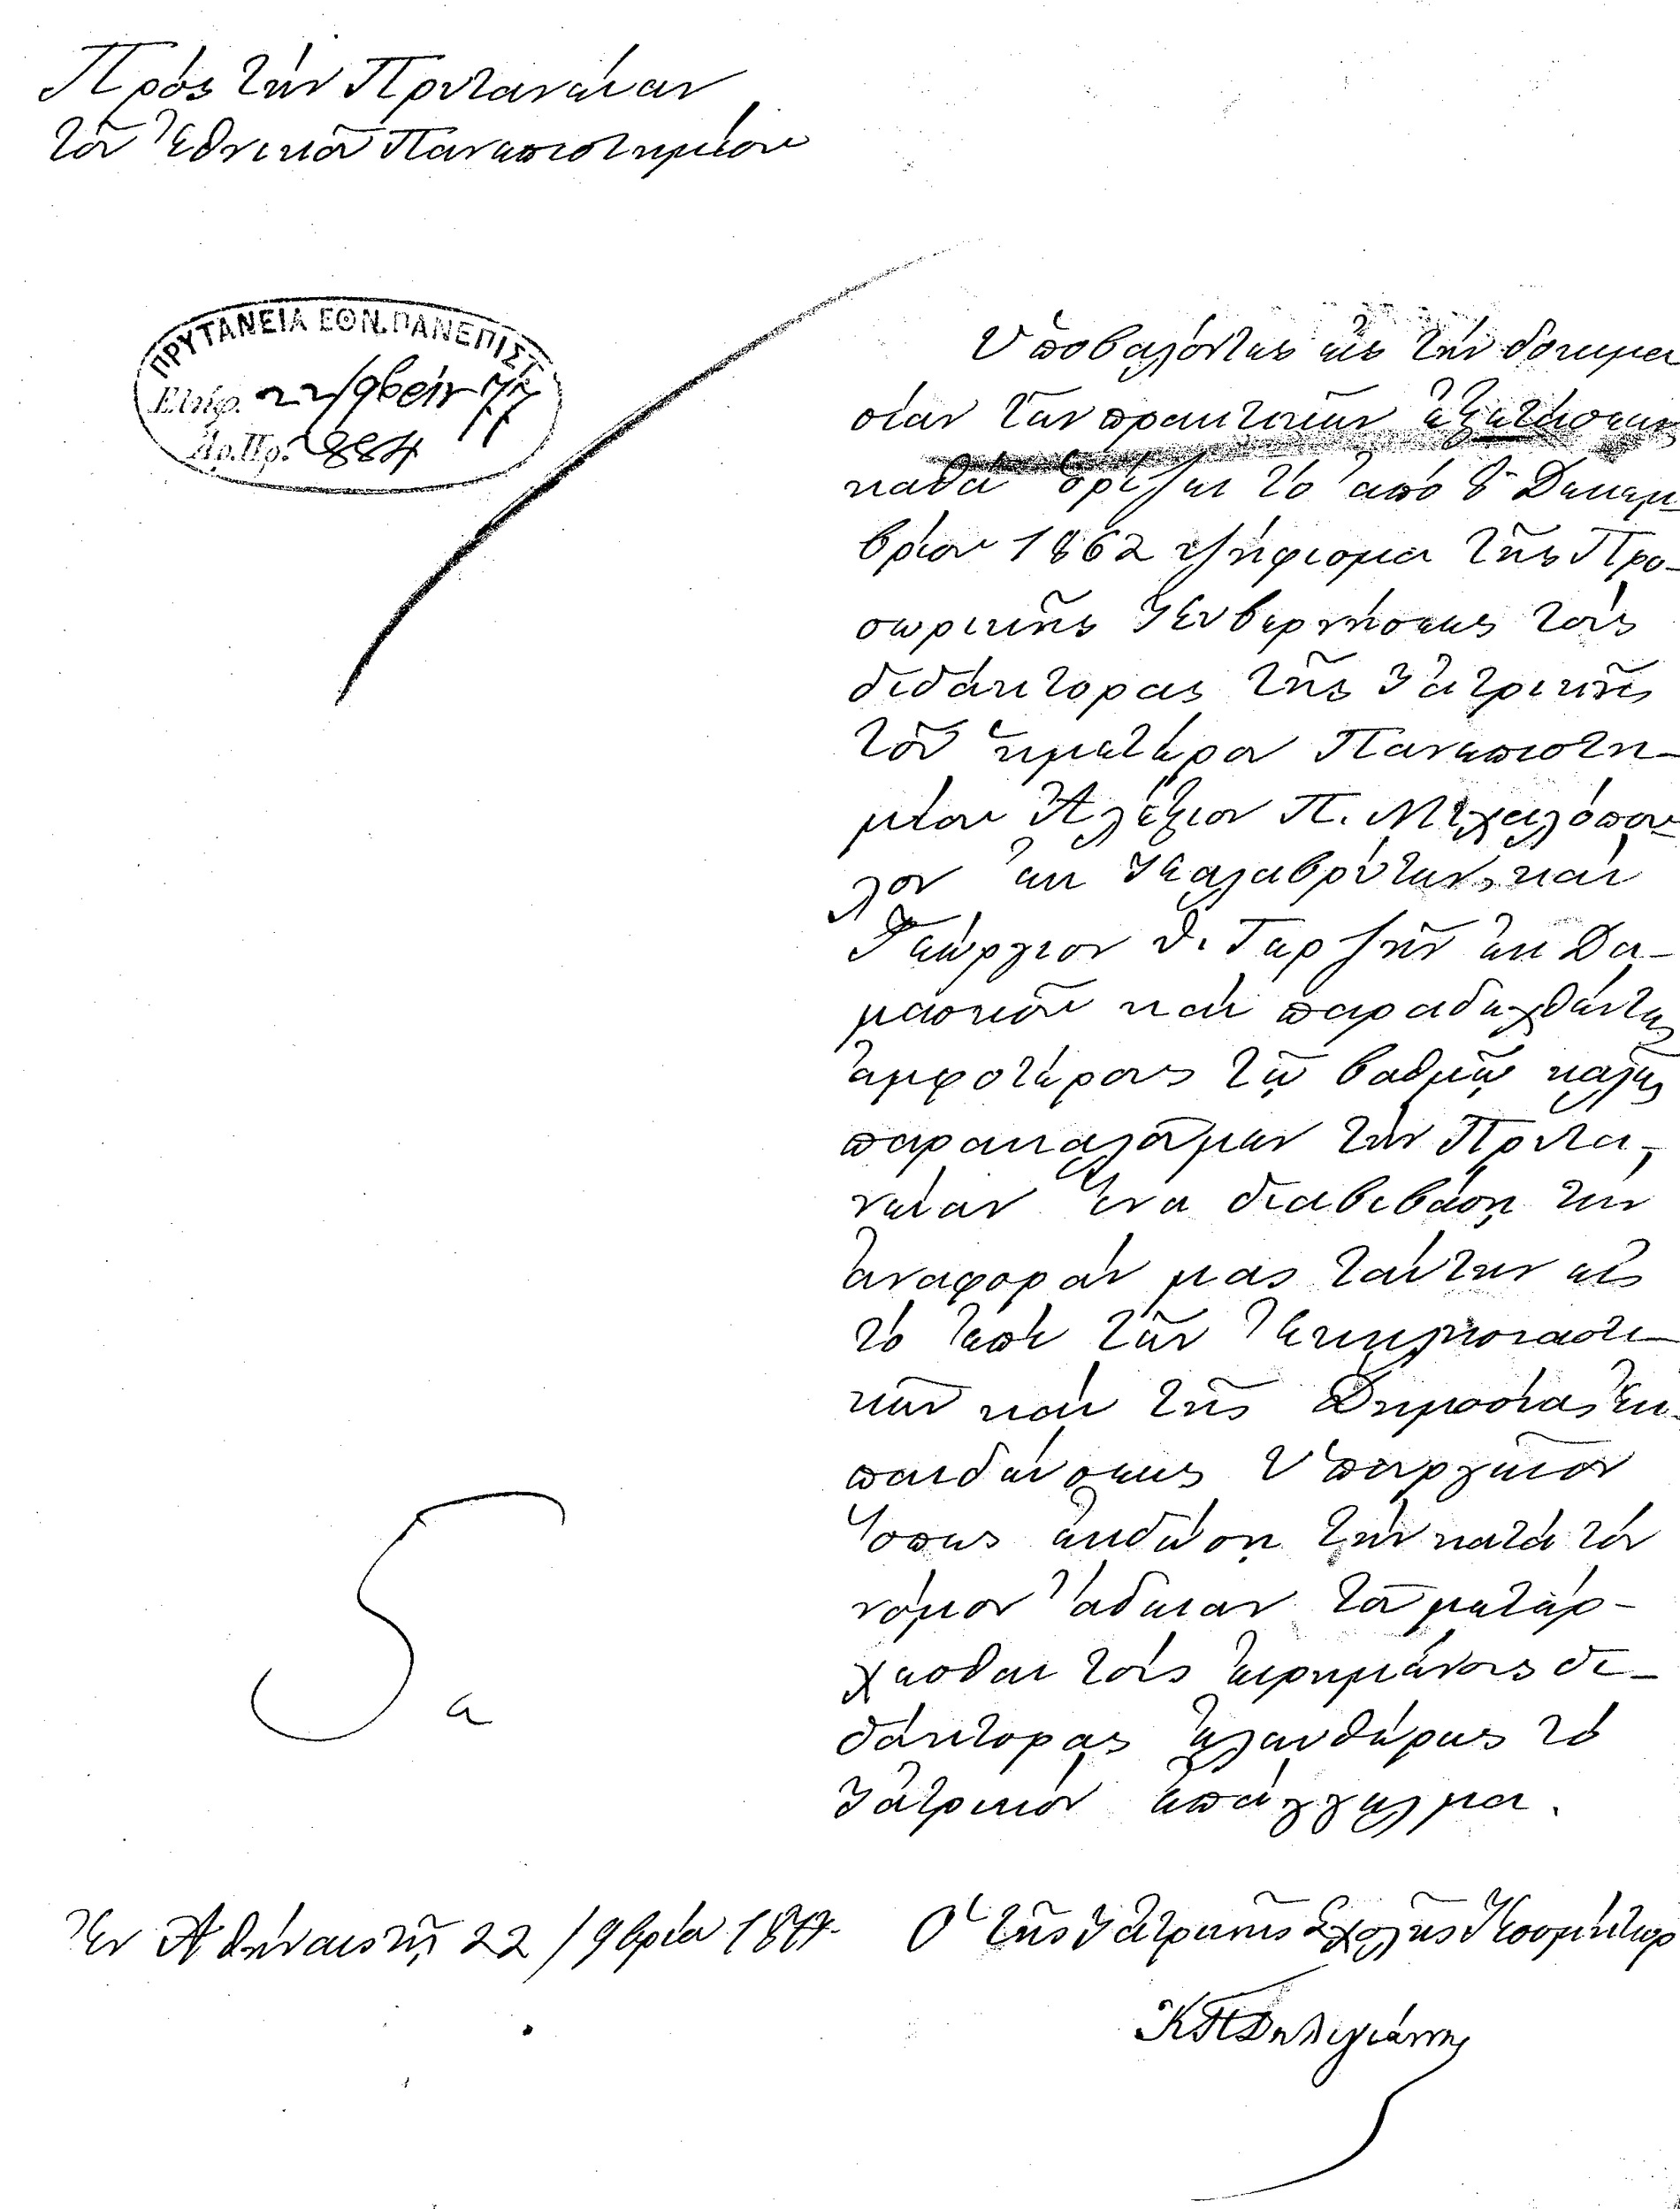 Πρὸς τὴν Πρυτανείαν
τοῦ Ἐθνικοῦ Πανεπιστημίου
ΠΡΥΤΑΝΕΙΑ ΕΘΝ. ΠΑΝΕΠΙΣΤ.
Ἐλήφ. 22/9βρίου 77
Ἀρ. Πρ. 884
Ὑποβαλόντες εἰς τὴν δοκιμα
σίαν τῶν πρακτικῶν ἐξετάσεων
καθὰ ὁρίζει τὸ ἀπὸ 8 Δεκεμ-
βρίου 1862 ψήφισμα τῆς Προ-
σωρινῆς Κυβερνήσεως τοὺς
διδάκτορας τῆς Ἰατρικῆς
τοῦ ἡμετέρου Πανεπιστη-
μίου Ἀλέξιον Π. Μιχαλόπου-
λον ἐκ Καλαβρύτων, καὶ
Γεώργιον Θ. Γερζῆν ἐκ Δα-
μασκοῦ καὶ παραδεχθέντες
ἀμφοτέρους τῷ βαθμῷ καλῶς
παρακαλοῦμεν τὴν Πρυτα-
νείαν ἵνα διαβιβάσῃ τὴν
ἀναφοράν μας ταύτην εἰς
τὸ ἐπὶ τῶν Ἐκκλησιαστι-
κῶν καὶ τῆς Δημοσίας Ἐκ-
παιδεύσεως Ὑπουργεῖον
ὅπως ἐκδώσῃ τὴν κατὰ τὸν
νόμον ἄδειαν τοῦ μετέρ-
χεσθαι τοὺς εἰρημένους δι-
δάκτορας ἐλευθέρως τὸ
Ἰατρικὸν ἐπάγγελμα.
Ἐν Ἀθήναις τῇ 22/9βρίου 1877.
Ὁ τῆς Ἰατρικῆς Σχολῆς Κοσμήτωρ
ΚΠΔηλιγιάννης